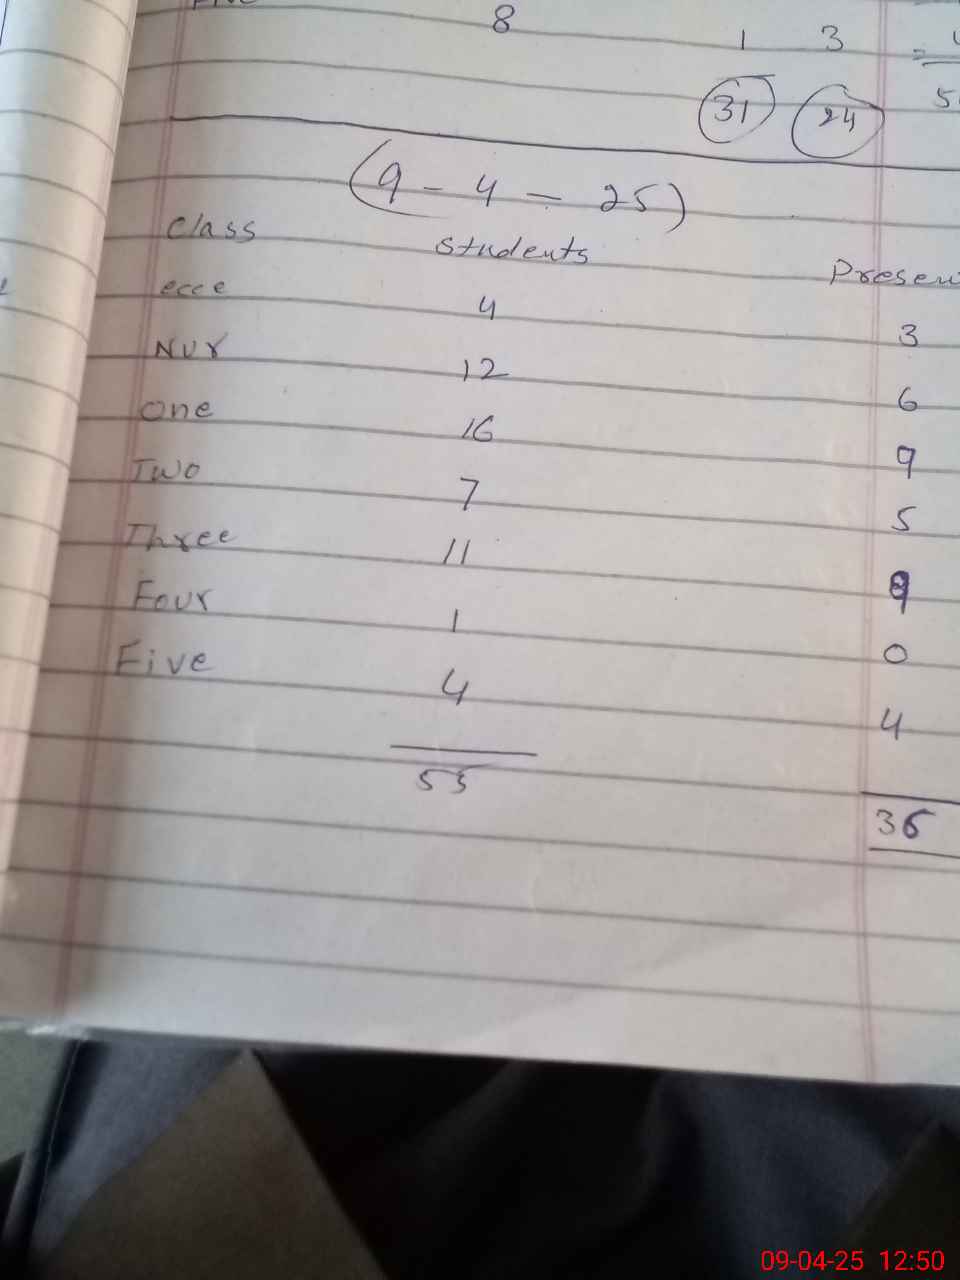 Five 8
1 3 =
31 24
(9 - 4 - 25)
Class Students Presen
ecce 4 3
Nur 12 6
One 16 9
Two 7 5
Three 11 9
Four 1 0
Five 4 4
55 36
09-04-25 12:50